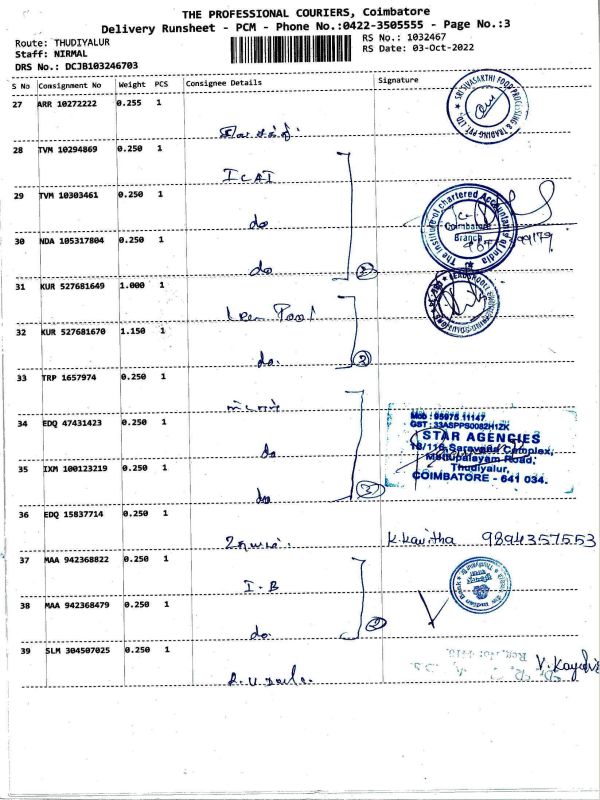 THE PROFESSIONAL COURIERS, Coimbatore
Delivery Runsheet - PCM - Phone No.:0422-3505555 - Page No.:3
Route: THUDIYALUR
Staff: NIRMAL
DRS No.: DCJB103246703
RS No.: 1032467
RS Date: 03-Oct-2022
S No Consignment No Weight PCS Consignee Details Signature
27 ARR 10272222 0.255 1
SRI SIVASAKTHI FOOD PROCESSING & TRADING PVT. LTD.
28 TVM 10294869 0.250 1
ICAI
29 TVM 10303461 0.250 1
do
The Institute of Chartered Accountants of India
Coimbatore
Branch
30 NDA 105317804 0.250 1
do
③
31 KUR 527681649 1.000 1
32 KUR 527681670 1.150 1
do.
②
33 TRP 1657974 0.250 1
34 EDQ 47431423 0.250 1
do
Mob : 95975 11147
GST : 33ASPPS0082H1ZK
STAR AGENCIES
Mettupalayam Road,
Thudiyalur,
COIMBATORE - 641 034.
35 IXM 100123219 0.250 1
do
③
36 EDQ 15837714 0.250 1
K.Kavitha 9894357553
37 MAA 942368822 0.250 1
I-B
38 MAA 942368479 0.250 1
do.
②
39 SLM 304507025 0.250 1